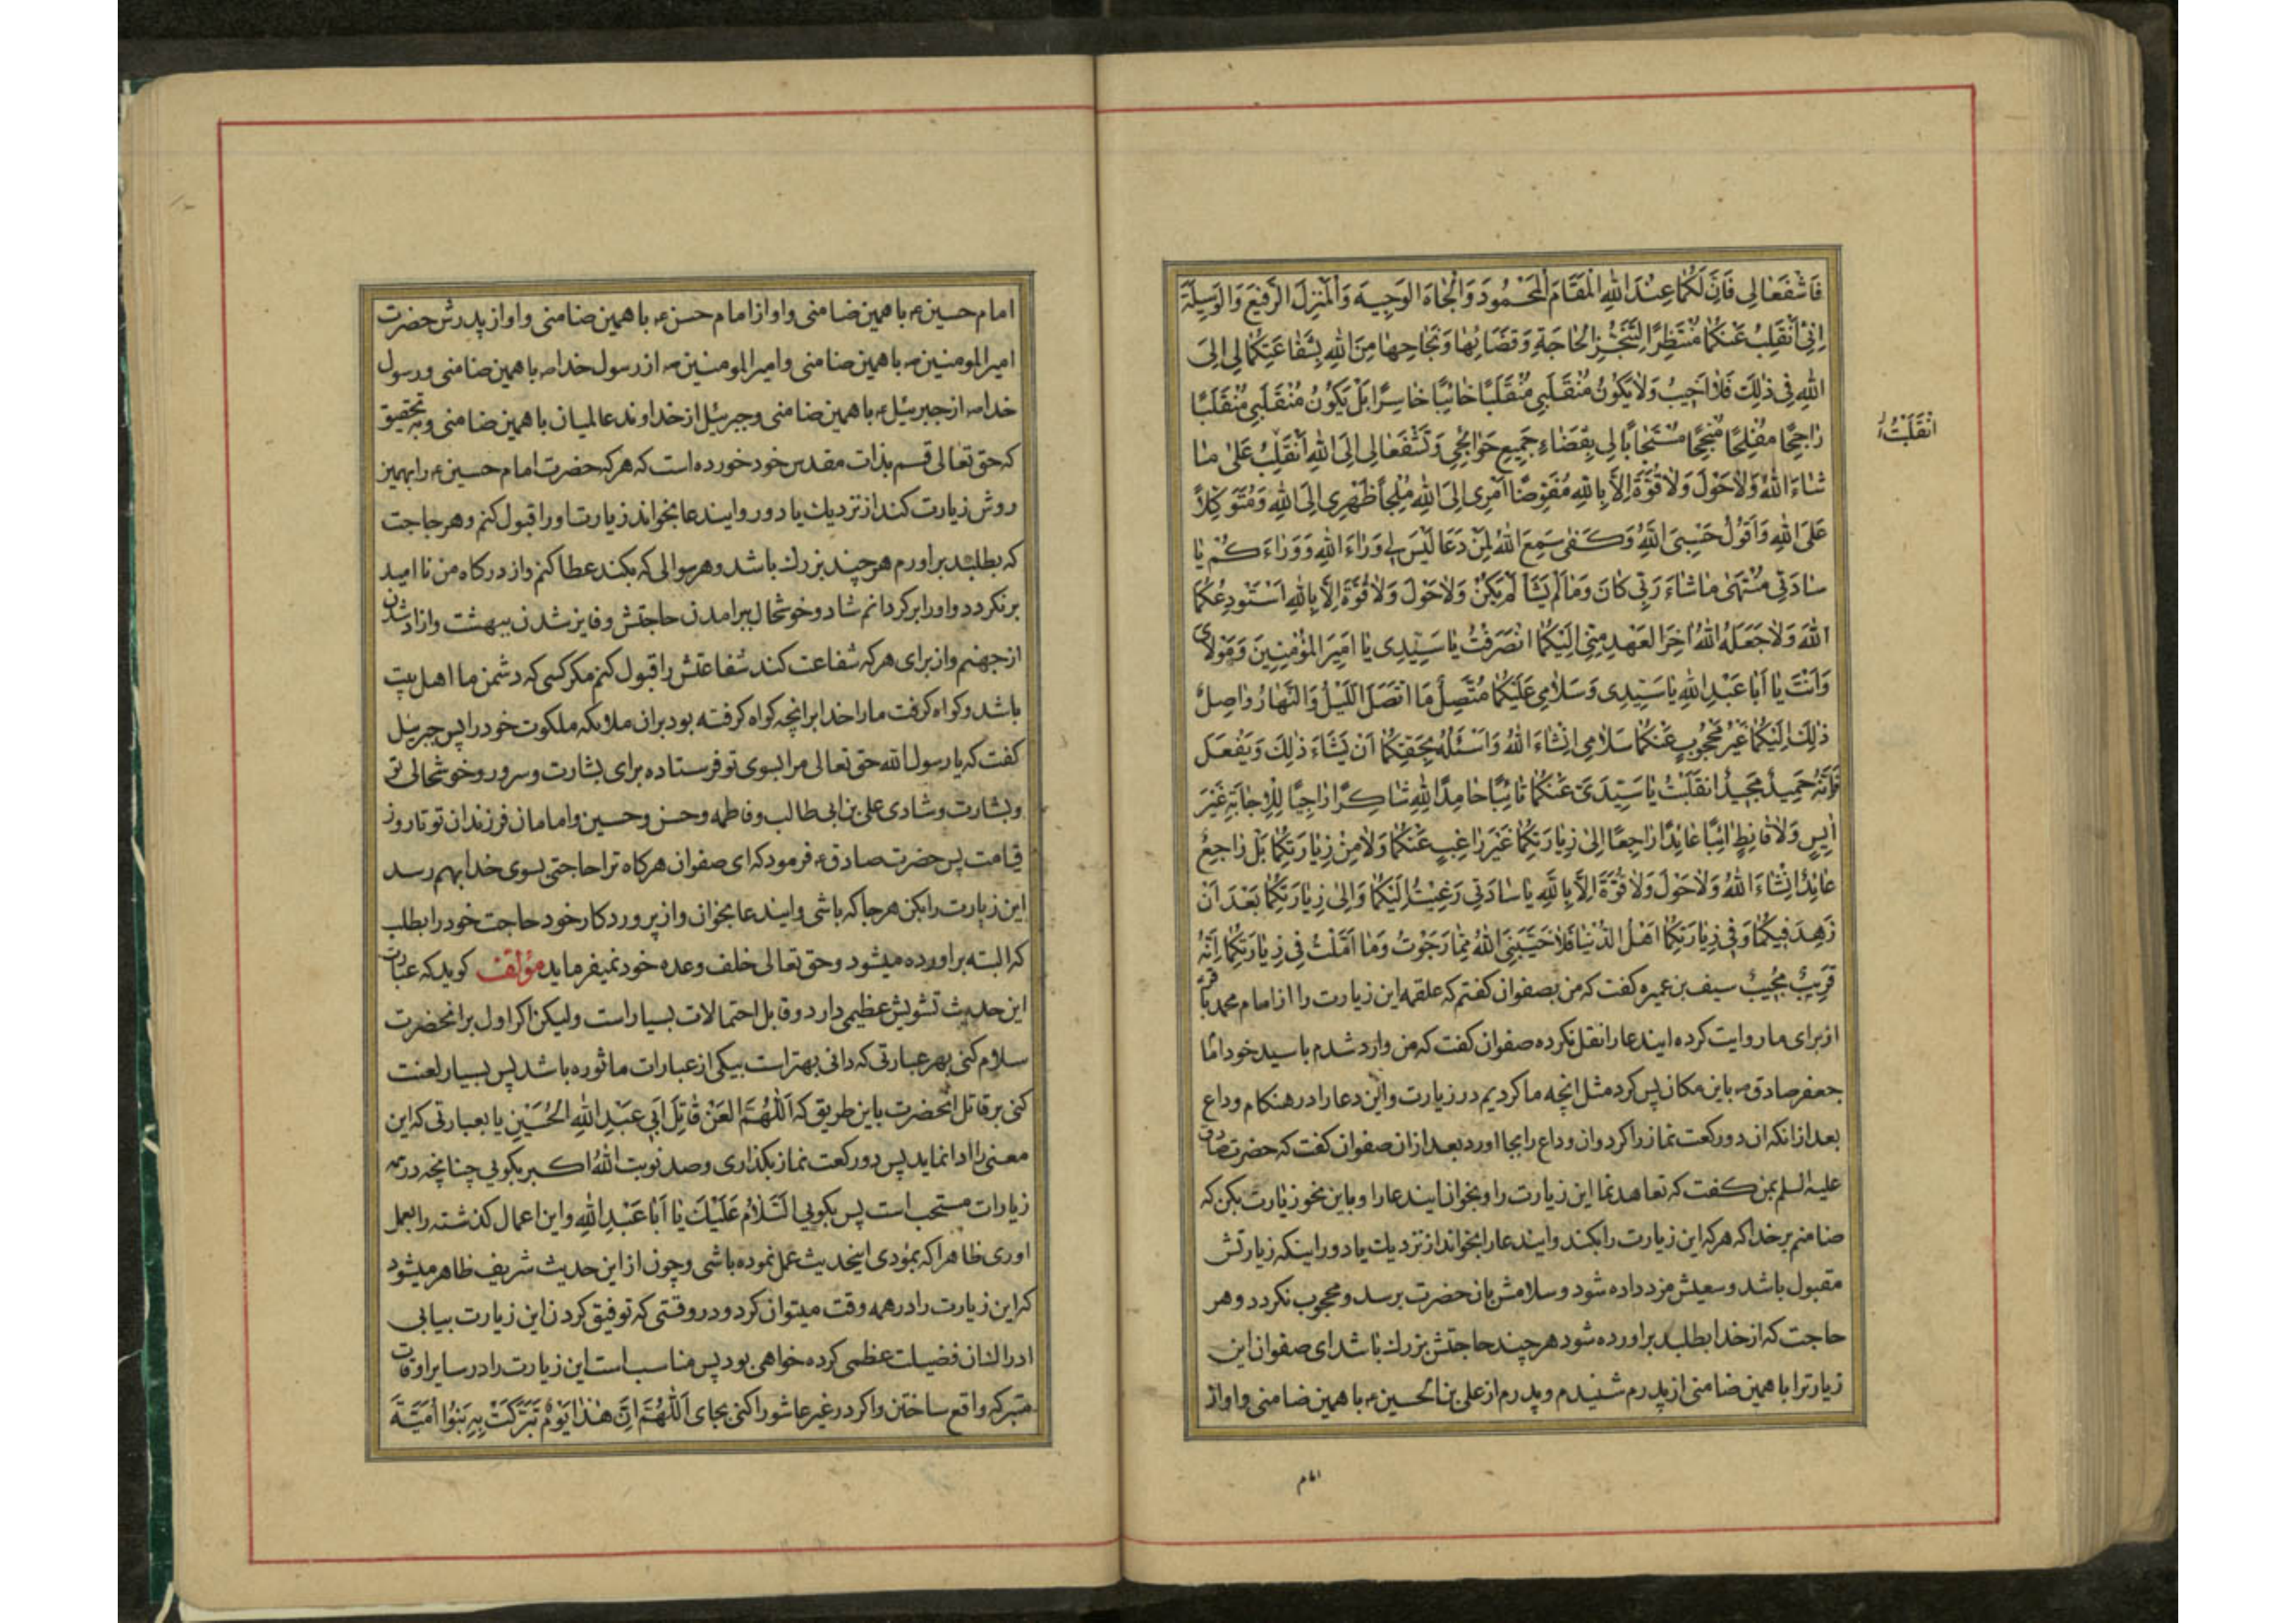 فَاشْفَعَا لِي فَاِنَّ لَكُمَا عِنْدَ اللهِ الْمَقَامَ الْمَحْمُودَ وَالْجَاهَ الْوَجِيهَ وَالْمَنْزِلَ الرَّفِيعَ وَالْوَسِيلَةَ
اِنِّي اَنْقَلِبُ عَنْكُمَا مُنْتَظِرًا لِتَنَجُّزِ الْحَاجَةِ وَقَضَائِهَا وَنَجَاحِهَا مِنَ اللهِ بِشَفَاعَتِكُمَا لِي اِلَى
اللهِ فِي ذٰلِكَ فَلَا اَخِيبُ وَلَا يَكُونُ مُنْقَلَبِي مُنْقَلَبًا خَائِبًا خَاسِرًا بَلْ يَكُونُ مُنْقَلَبِي مُنْقَلَبًا
رَاجِحًا مُفْلِحًا مُنْجِحًا مُسْتَجَابًا لِي بِقَضَاءِ جَمِيعِ حَوَائِجِي وَتَشْفَعَا لِي اِلَى اللهِ اَنْقَلِبُ عَلَى مَا
انْقَلَبْتُ
شَاءَ اللهُ وَلَا حَوْلَ وَلَا قُوَّةَ اِلَّا بِاللهِ مُفَوِّضًا اَمْرِي اِلَى اللهِ مُلْجِأً ظَهْرِي اِلَى اللهِ وَمُتَوَكِّلًا
عَلَى اللهِ وَاَقُولُ حَسْبِيَ اللهُ وَكَفَى سَمِعَ اللهُ لِمَنْ دَعَا لَيْسَ لِي وَرَاءَ اللهِ وَوَرَاءَكُمْ يَا
سَادَتِي مُنْتَهَى مَا شَاءَ رَبِّي كَانَ وَمَا لَمْ يَشَأْ لَمْ يَكُنْ وَلَا حَوْلَ وَلَا قُوَّةَ اِلَّا بِاللهِ اَسْتَوْدِعُكُمَا
اللهَ وَلَا جَعَلَهُ اللهُ اٰخِرَ الْعَهْدِ مِنِّي اِلَيْكُمَا انْصَرَفْتُ يَا سَيِّدِي يَا اَمِيرَ الْمُؤْمِنِينَ وَمَوْلَايَ
وَاَنْتَ يَا اَبَا عَبْدِ اللهِ يَا سَيِّدِي وَسَلَامِي عَلَيْكُمَا مُتَّصِلٌ مَا اتَّصَلَ اللَّيْلُ وَالنَّهَارُ وَاصِلٌ
ذٰلِكَ اِلَيْكُمَا غَيْرُ مَحْجُوبٍ عَنْكُمَا سَلَامِي اِنْشَاءَ اللهُ وَاَسْئَلُهُ بِحَقِّكُمَا اَنْ يَشَاءَ ذٰلِكَ وَيَفْعَلَ
فَاِنَّهُ حَمِيدٌ مَجِيدٌ انْقَلَبْتُ يَا سَيِّدَيَّ عَنْكُمَا تَائِبًا حَامِدًا لِلهِ شَاكِرًا رَاجِيًا لِلْاِجَابَةِ غَيْرَ
اٰيِسٍ وَلَا قَانِطٍ اٰئِبًا عَائِدًا رَاجِعًا اِلَى زِيَارَتِكُمَا غَيْرَ رَاغِبٍ عَنْكُمَا وَلَا مِنْ زِيَارَتِكُمَا بَلْ رَاجِعٌ
عَائِدٌ اِنْشَاءَ اللهُ وَلَا حَوْلَ وَلَا قُوَّةَ اِلَّا بِاللهِ يَا سَادَتِي رَغِبْتُ اِلَيْكُمَا وَاِلَى زِيَارَتِكُمَا بَعْدَ اَنْ
زَهِدَ فِيكُمَا وَفِي زِيَارَتِكُمَا اَهْلُ الدُّنْيَا فَلَا خَيَّبَنِيَ اللهُ مِمَّا رَجَوْتُ وَمَا اَمَّلْتُ فِي زِيَارَتِكُمَا اِنَّهُ
قَرِيبٌ مُجِيبٌ سیف بن عمیره گفت که من بصفوان گفتم که علقمه این زیارت را از امام محمد باقر
از برای ما روایت کرده ایندعا را نقل نکرده صفوان گفت که من وارد شدم با سید خود امام
جعفر صادق ع باین مکان پس کرد مثل انچه ما کردیم در زیارت و این دعا را در هنکام وداع
بعد از انکه ان دو رکعت نماز را کرد و ان وداع را بجا اورد بعد از ان صفوان گفت که حضرت صادق
علیه السلم بمن گفت که تعاهد نما این زیارت را و بخوان ایندعا را و باین نحو زیارت بکن که
ضامنم بر خدا که هرکه این زیارت را بکند و ایندعا را بخواند از نزدیک یا دور اینکه زیارتش
مقبول باشد و سعیش مزد داده شود و سلامش بان حضرت برسد و محجوب نکردد و هر
حاجت که از خدا بطلبد براورده شود هرچند حاجتش بزرك باشد ای صفوان این
زیارترا با همین ضامنی از پدرم شنیدم و پدرم از علی بن الحسین ع با همین ضامنی و او از
امام
امام حسین ع با همین ضامنی و او از امام حسن ع با همین ضامنی و او از پدرش حضرت
امیر المومنین ع با همین ضامنی و امیر المومنین ع از رسول خدا ص با همین ضامنی و رسول
خدا ص از جبرئیل ع با همین ضامنی و جبرئیل از خداوند عالمیان با همین ضامنی و به تحقیق
که حق تعالی قسم بذات مقدس خود خورده است که هرکه حضرت امام حسین ع را بهمین
روش زیارت کند از نزدیك یا دور و ایندعا بخواند زیارت او را قبول کنم و هر حاجت
که بطلبد براورم هرچند بزرك باشد و هر سوالی که بکند عطا کنم و از درکاه من نا امید
برنکردد و او را برکردانم شاد و خوشحال ببرامدن حاجتش و فایز شدن ببهشت و ازاد شدن
از جهنم و از برای هرکه شفاعت کند شفاعتش را قبول کنم مکر کسی که دشمن ما اهل بیت
باشد و کواه کرفت ما را خدا برانچه کواه کرفته بود بران ملائکه ملکوت خود را پس جبرئیل
گفت که یا رسول الله حق تعالی مرا بسوی تو فرستاده برای بشارت و سرور و خوشحالی تو
و بشارت و شادی علی بن ابی طالب و فاطمه و حسن و حسین و امامان فرزندان تو تا روز
قیامت پس حضرت صادق ع فرمود که ای صفوان هرکاه ترا حاجتی بسوی خدا بهم رسد
این زیارت را بکن هرجا که باشی و ایندعا بخوان و از پروردکار خود حاجت خود را بطلب
که البته براورده میشود و حق تعالی خلف وعده خود نمیفرماید مؤلف کوید که عبارت
این حدیث تشویش عظیمی دارد و قابل احتمالات بسیار است ولیکن اکر اول بر انحضرت
سلام کنی بهر عبارتی که دانی بهتر است بیکی از عبارات ماثوره باشد پس بسیار لعنت
کنی بر قاتل انحضرت باین طریق که اَللّٰهُمَّ الْعَنْ قَاتِلَ اَبِي عَبْدِ اللهِ الْحُسَيْنِ یا بعبارتی که این
معنی را ادا نماید پس دو رکعت نماز بکذاری و صد نوبت اَللهُ اَكبر بکویی چنانچه در همه
زیارات مستحب است پس بکویی اَلسَّلَامُ عَلَيْكَ يَا اَبَا عَبْدِ اللهِ و این اعمال کذشته را بعمل
اوری ظاهرا که بمؤدی اینحدیث عمل نموده باشی و چون از این حدیث شریف ظاهر میشود
که این زیارت را در همه وقت میتوان کرد و در وقتی که توفیق کردن این زیارت بیابی
ادراك ان فضیلت عظمی کرده خواهی بود پس مناسب است این زیارت را در سایر اوقات
متبرکه واقع ساختن و اکر در غیر عاشورا کنی بجای اَللّٰهُمَّ اِنَّ هٰذَا يَوْمٌ تَبَرَّكَتْ بِهِ بَنُوا اُمَيَّةَ